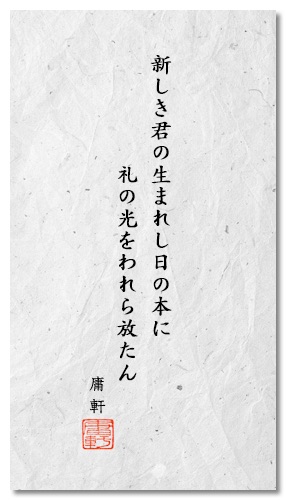 新しき君の生まれし日の本に
礼の光をわれら放たん
庸軒
庸軒